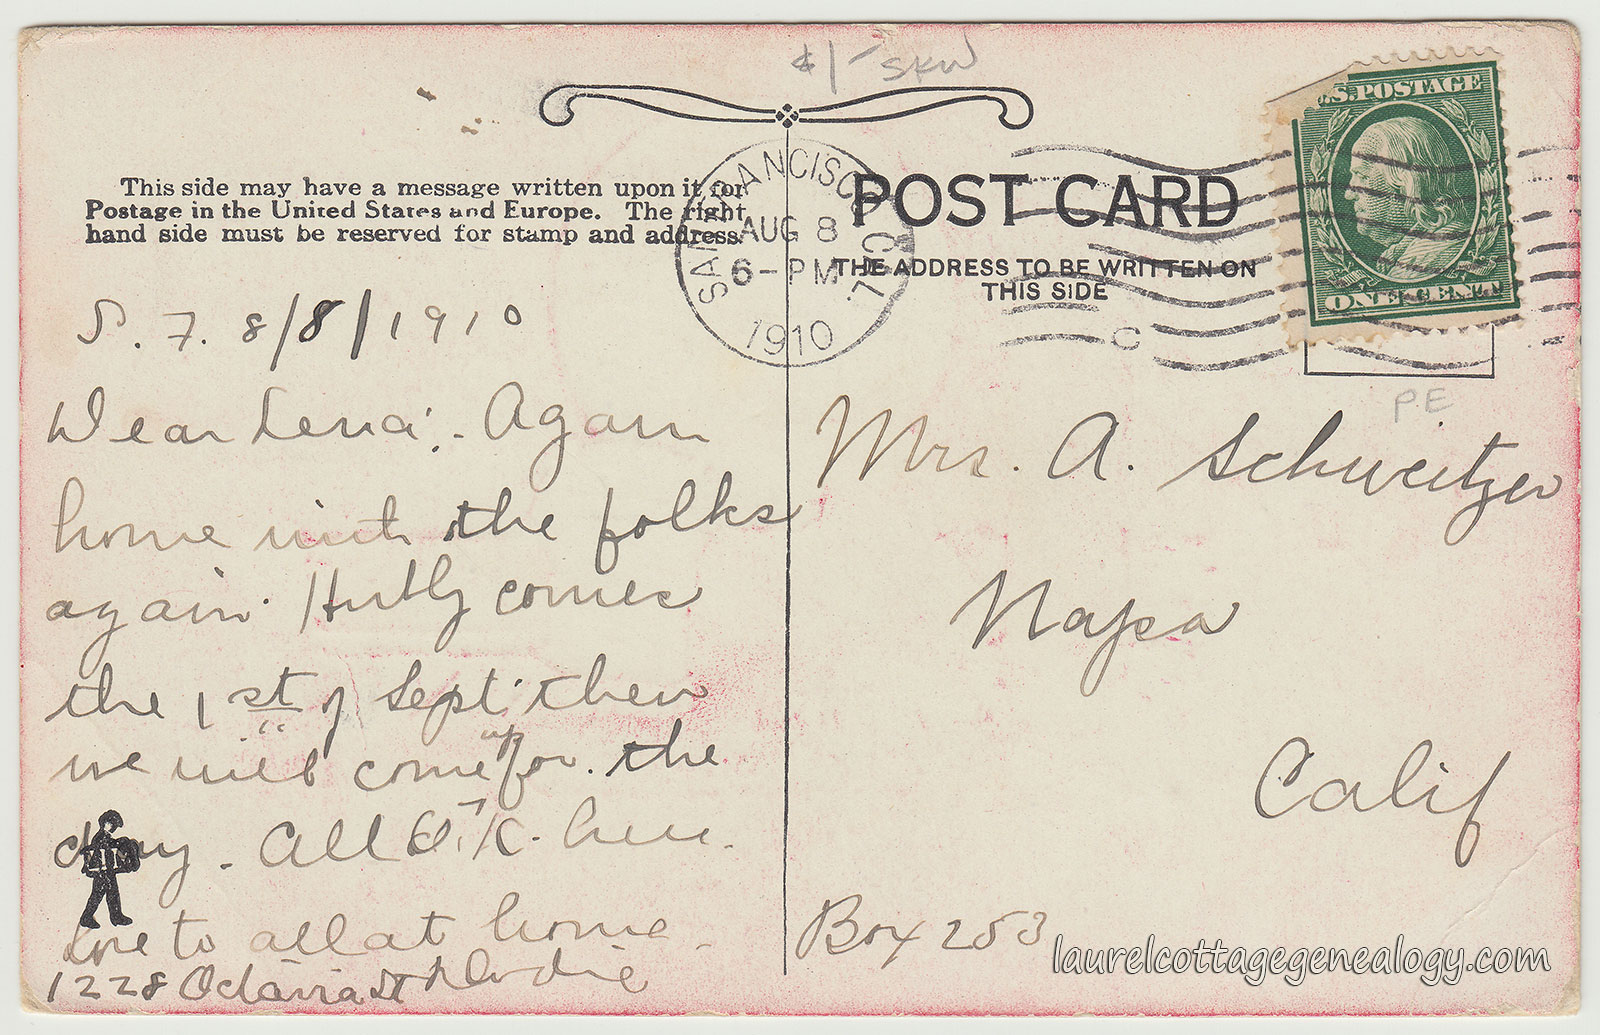 $1- SKW
This side may have a message written upon it for
Postage in the United States and Europe. The right
hand side must be reserved for stamp and address.
SAN FRANCISCO, CAL.
AUG 8
6-PM
1910
POST CARD
THE ADDRESS TO BE WRITTEN ON
THIS SIDE
C
U.S. POSTAGE
ONE CENT
P.E
S. F. 8/8/1910
Dear Lena:- Again
home with the folks
again. comes
the 1st of Sept. then
we will come up for the
day. All O.K. here.
Love to all at home.
1228 Octavia St
Mrs. A. Schweitzer
Napa
Calif
Box 253
laurelcottagegenealogy.com